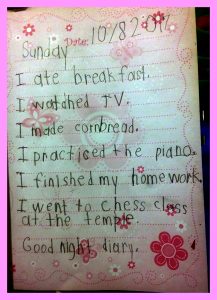 Sunday Date:
I ate breakfast.
I watched TV.
I made cornbread.
I practiced the piano.
I finished my homework.
I went to chess class
at the temple.
Good night diary.